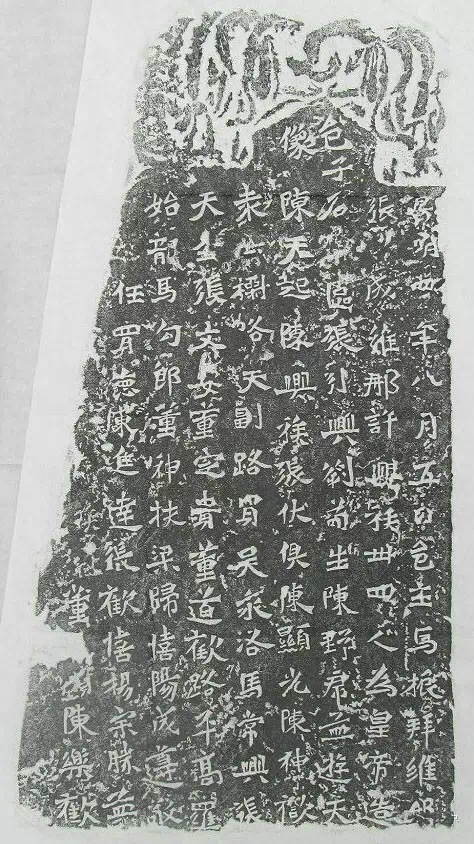 景明四年八月五日邑主馬振拜維那
張子成維那許興族卅四人為皇帝造
邑子石區張引興劉苟生陳野君孟遊天
像陳天起陳興族張伏俱陳顯光陳神歡
袁世摽路天副路買吳永洛馬常興張
天生張文安董定貴董道歡路平高羅
始龍馬勾郎董神扶梁歸憘陽成遵敬
任買德陳進達張歡憘楊宗勝孟
扶董陳樂歡